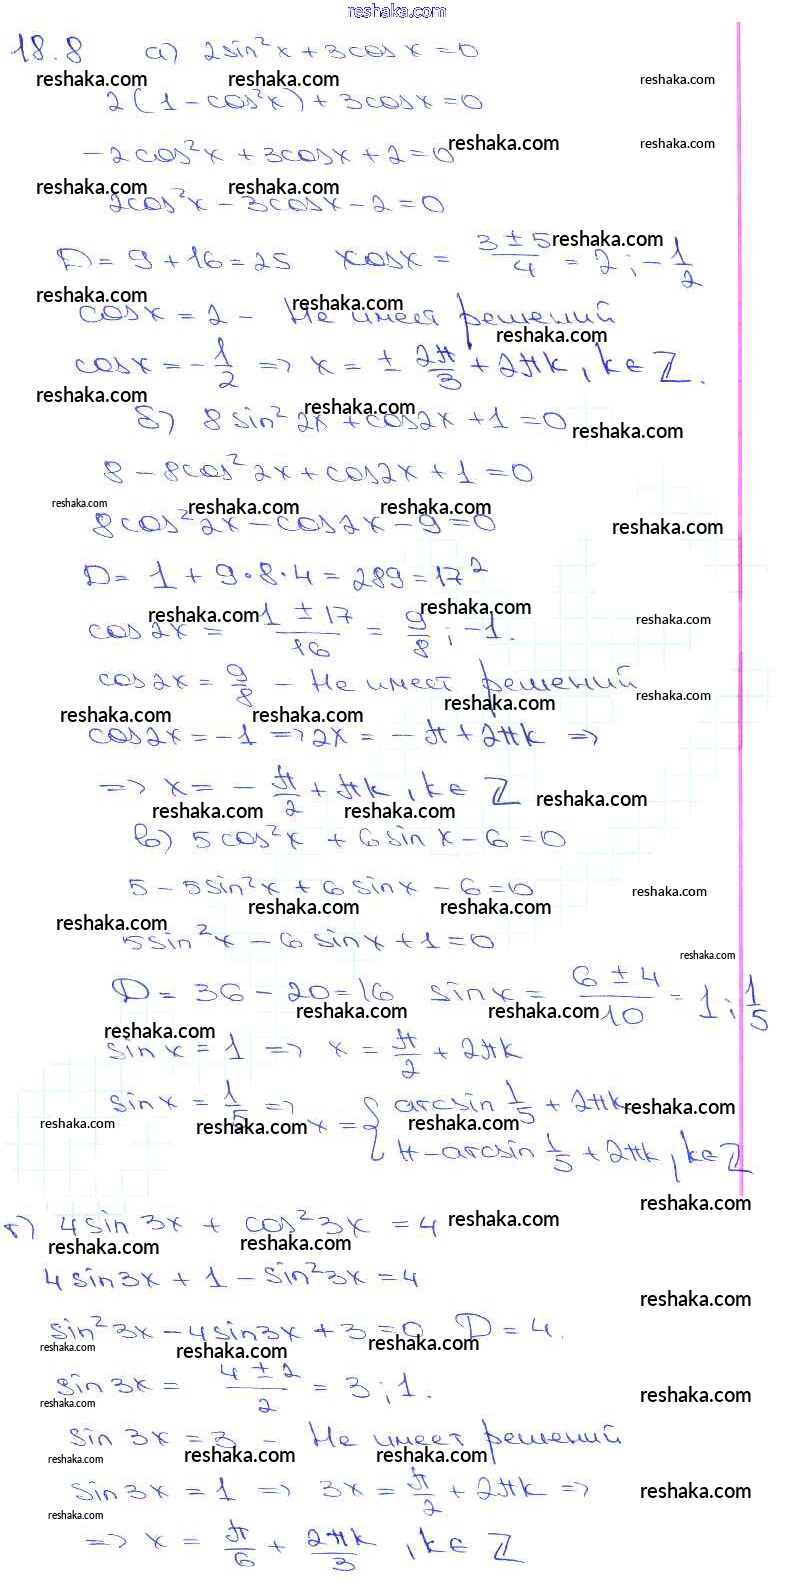 reshaka.com
18.8 а) 2sin²x + 3cosx = 0
reshaka.com reshaka.com reshaka.com
2(1 - cos²x) + 3cosx = 0
reshaka.com reshaka.com
-2cos²x + 3cosx + 2 = 0
reshaka.com reshaka.com
2cos²x - 3cosx - 2 = 0
reshaka.com
D = 9 + 16 = 25 xosx = (3 ± 5)/4 = 2; -1/2
reshaka.com reshaka.com
cosx = 2 - Не имея решений
reshaka.com
cosx = -1/2 => x = ± 2π/3 + 2πk, k∈Z.
reshaka.com reshaka.com
б) 8sin²2x + cos2x + 1 = 0
reshaka.com
8 - 8cos²2x + cos2x + 1 = 0
reshaka.com reshaka.com reshaka.com
8cos²2x - cos2x - 9 = 0
reshaka.com
D = 1 + 9·8·4 = 289 = 17²
reshaka.com reshaka.com reshaka.com
cos2x = (1 ± 17)/16 = 9/8; -1.
cos2x = 9/8 - Не имеет решений
reshaka.com reshaka.com
reshaka.com reshaka.com
cos2x = -1 => 2x = -π + 2πk =>
=> x = -π/2 + πk, k∈Z
reshaka.com reshaka.com reshaka.com
в) 5cos²x + 6sinx - 6 = 0
5 - 5sin²x + 6sinx - 6 = 0
reshaka.com
reshaka.com reshaka.com
reshaka.com
5sin²x - 6sinx + 1 = 0
reshaka.com
D = 36 - 20 = 16 sinx = (6 ± 4)/10 = 1; 1/5
reshaka.com reshaka.com
reshaka.com
sinx = 1 => x = π/2 + 2πk
sinx = 1/5 => x = { arcsin 1/5 + 2πk
reshaka.com reshaka.com reshaka.com reshaka.com
π - arcsin 1/5 + 2πk, k∈Z
reshaka.com
г) 4sin3x + cos²3x = 4
reshaka.com
reshaka.com reshaka.com
4sin3x + 1 - sin²3x = 4
reshaka.com
sin²3x - 4sin3x + 3 = 0 D = 4.
reshaka.com reshaka.com reshaka.com
sin3x = (4 ± 2)/2 = 3; 1.
reshaka.com reshaka.com
sin3x = 3 - Не имеет решений
reshaka.com reshaka.com reshaka.com
sin3x = 1 => 3x = π/2 + 2πk =>
reshaka.com
reshaka.com
=> x = π/6 + 2πk/3, k∈Z